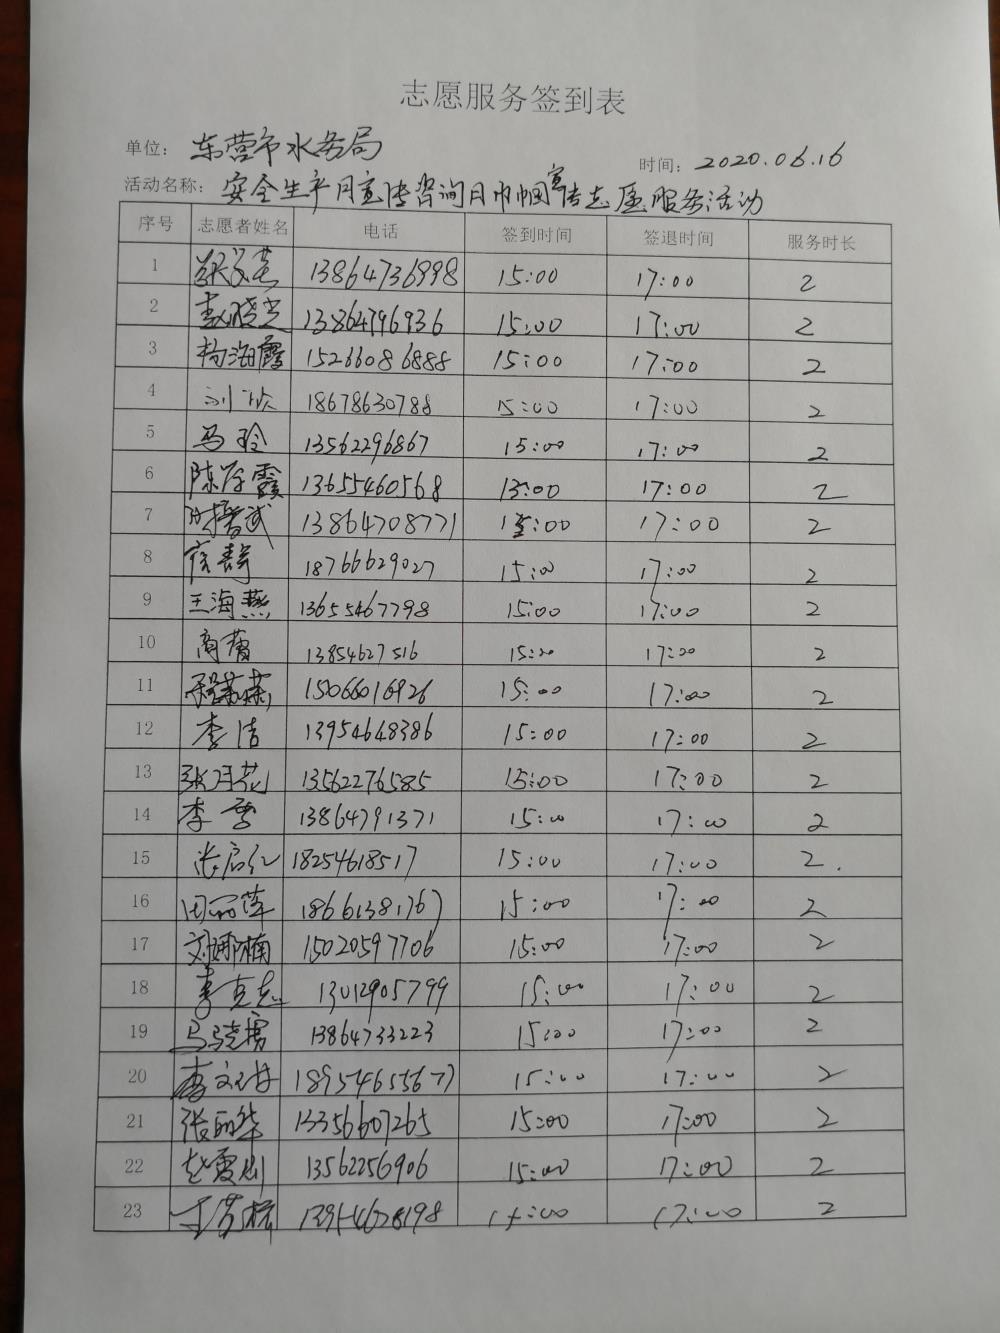 志愿服务签到表
单位: 东营市水务局 时间: 2020.06.16
活动名称: 安全生产月宣传咨询日巾帼宣传志愿服务活动
序号 志愿者姓名 电话 签到时间 签退时间 服务时长
1 13864736998 15:00 17:00 2
2 赵晓兰 13864796936 15:00 17:00 2
3 杨海霞 15266086888 15:00 17:00 2
4 刘欣 18678630788 15:00 17:00 2
5 马玲 13562296867 15:00 17:00 2
6 陈存霞 13655460568 15:00 17:00 2
7 13864708771 15:00 17:00 2
8 18766629027 15:00 17:00 2
9 王海燕 13655467798 15:00 17:00 2
10 商蕾 13854627516 15:00 17:00 2
11 15066016926 15:00 17:00 2
12 李洁 13954648386 15:00 17:00 2
13 张月花 13562276585 15:00 17:00 2
14 李雪 13864791371 15:00 17:00 2
15 张启红 18254618517 15:00 17:00 2.
16 田丽萍 18661381767 15:00 17:00 2
17 刘娜楠 15020597706 15:00 17:00 2
18 李克志 13012905799 15:00 17:00 2
19 马晓勇 13864733223 15:00 17:00 2
20 18954655677 15:00 17:00 2
21 张丽华 13356607265 15:00 17:00 2
22 13562256906 15:00 17:00 2
23 13954628198 15:00 17:00 2